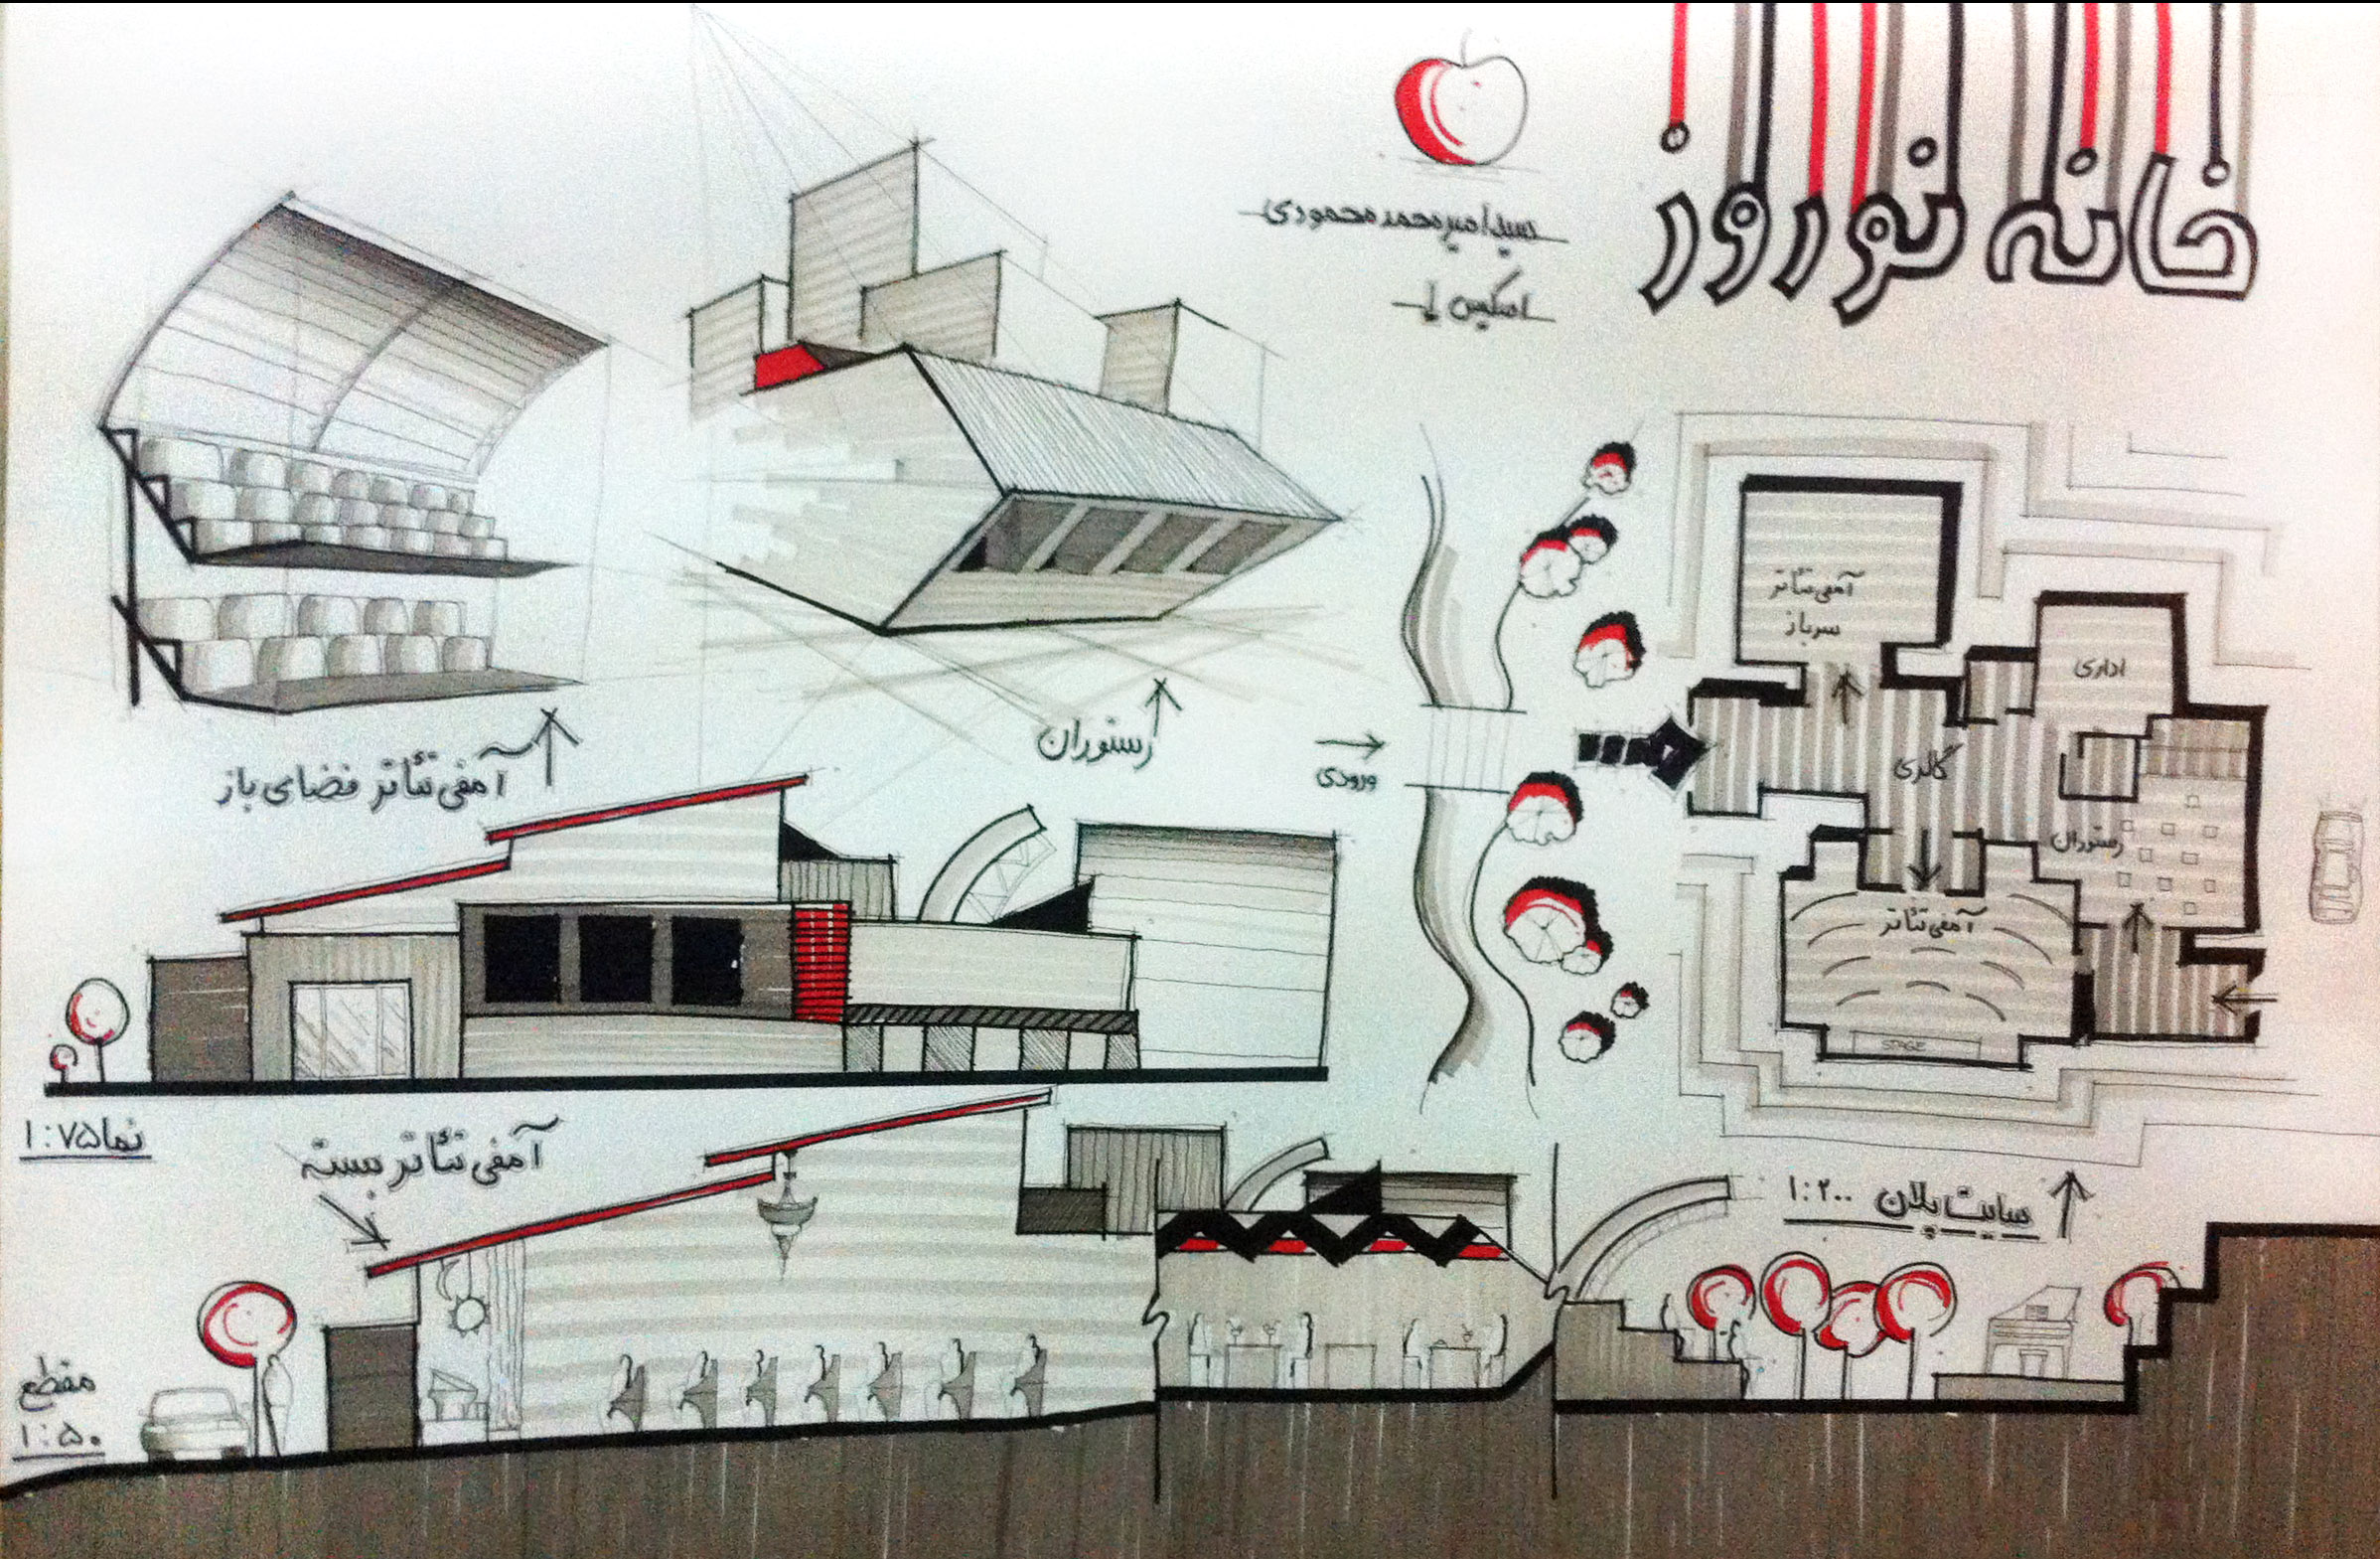 خانه نوروز
سید امیرمحمد محمودی
اسکیس ۱
آمفی تئاتر فضای باز
رستوران
ورودی
آمفی تئاتر
سرباز
اداری
گالری
رستوران
آمفی تئاتر
STAGE
نما ۱:۷۵
آمفی تئاتر بسته
سایت پلان ۱:۲۰۰
مقطع
۱:۵۰